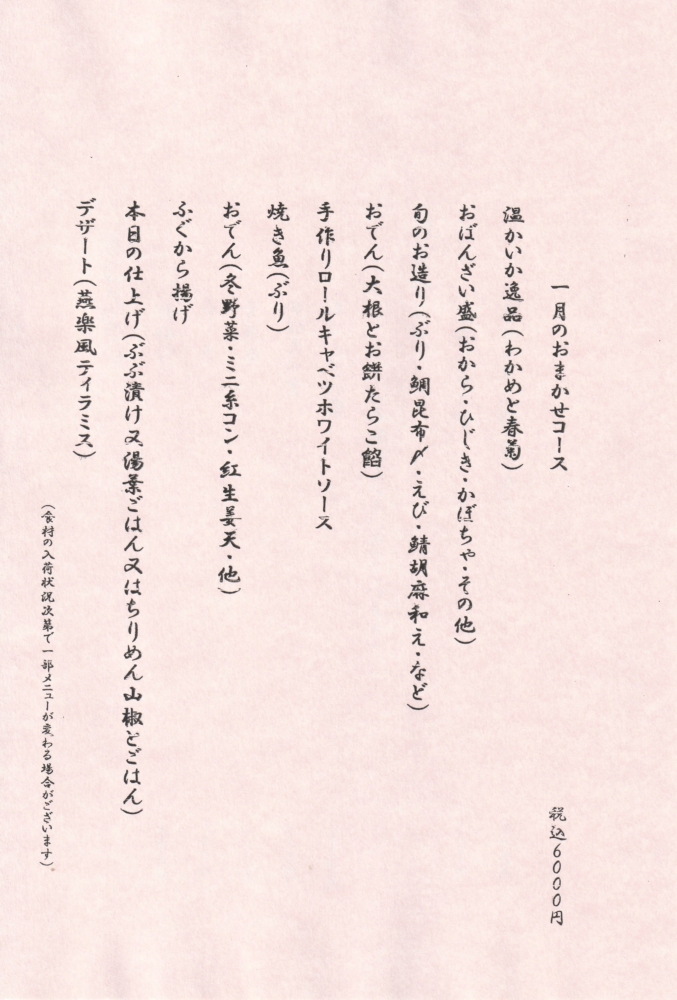 一月のおまかせコース
税込6000円
温かいか逸品(わかめと春菊)
おばんざい盛(おから・ひじき・かぼちゃ・その他)
旬のお造り(ぶり・鯛昆布〆・えび・鯖胡麻和え・など)
おでん(大根とお餅たらこ餡)
手作りロールキャベツホワイトソース
焼き魚(ぶり)
おでん(冬野菜・ミニ糸コン・紅生姜天・他)
ふぐから揚げ
本日の仕上げ(ぶぶ漬け又湯葉ごはん又はちりめん山椒とごはん)
デザート(燕楽風ティラミス)
(食材の入荷状況次第で一部メニューが変わる場合がございます)